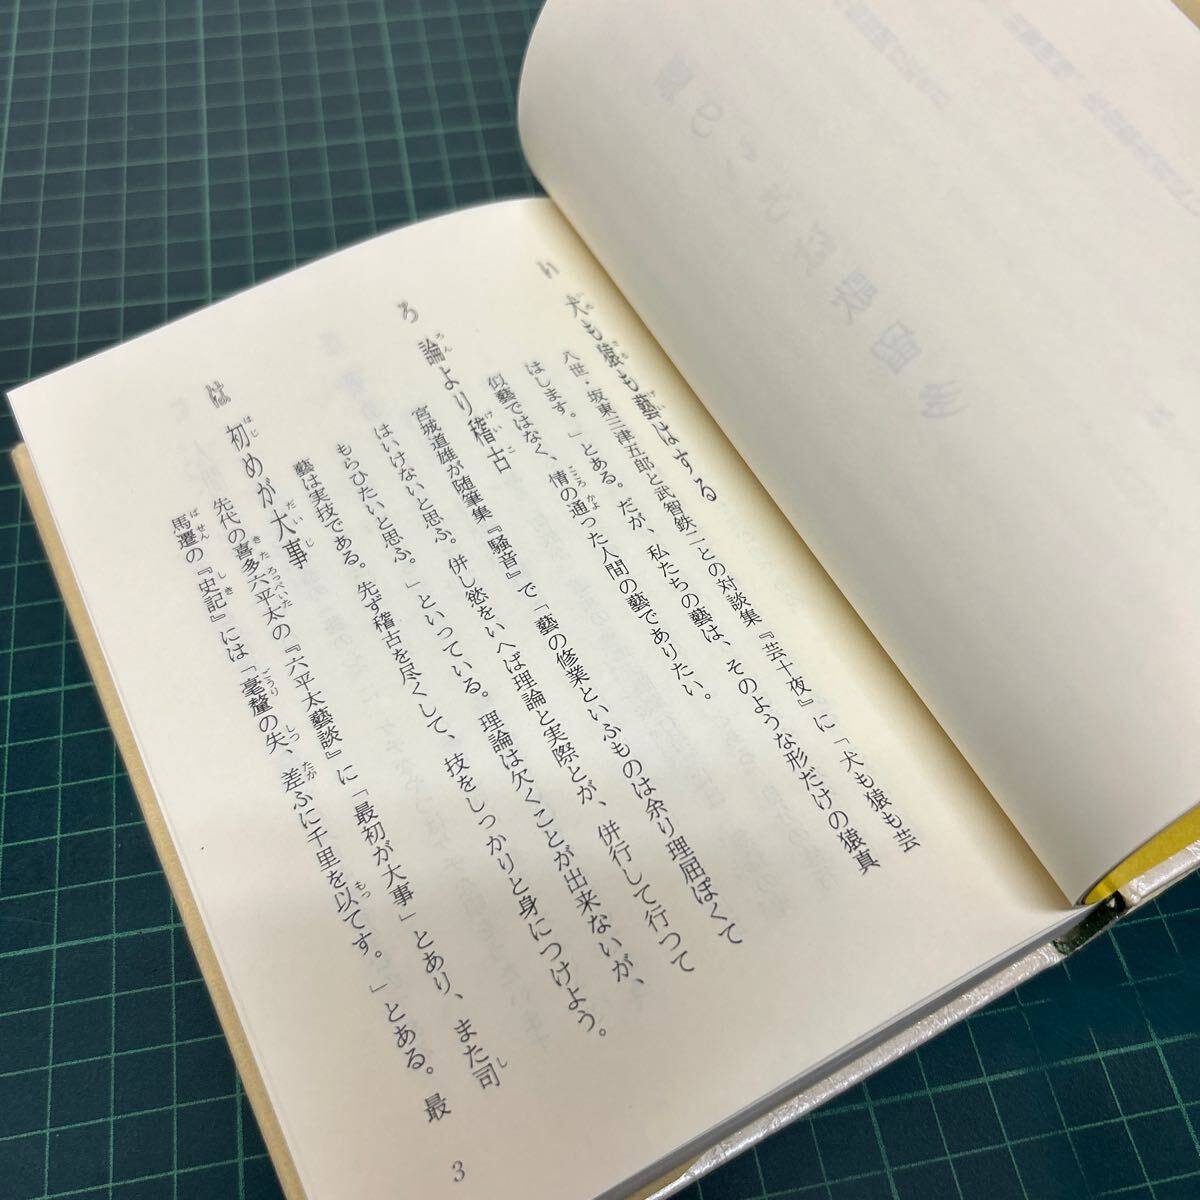 い 犬も猿も藝はする
八世・坂東三津五郎と武智鉄二との対談集『芸十夜』に「犬も猿も芸
はします。」とある。だが、私たちの藝は、そのような形だけの猿真
似藝ではなく、情の通った人間の藝でありたい。
ろ 論より稽古
宮城道雄が随筆集『騒音』で「藝の修業といふものは余り理屈ぽくて
はいけないと思ふ。併し慾をいへば理論と実際とが、併行して行つて
もらひたいと思ふ。」といっている。理論は欠くことが出来ないが、
藝は実技である。先ず稽古を尽くして、技をしっかりと身につけよう。
は 初めが大事
先代の喜多六平太の『六平太藝談』に「最初が大事」とあり、また司
馬遷の『史記』には「毫釐の失、差ふに千里を以てす。」とある。最
3